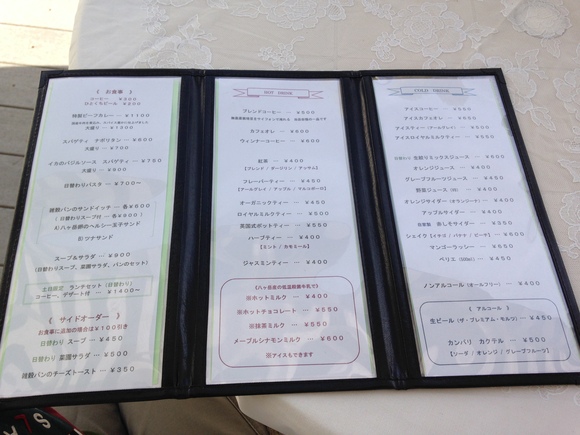 《 お食事 》
コーヒー ¥300
ひとくちビール ¥200
特製ビーフカレー ― ¥1100
大盛り ― ¥1300
スパゲティ ナポリタン ― ¥600
大盛り ― ¥700
イカのバジルソース スパゲティ ― ¥750
大盛り ― ¥900
日替わりパスタ ― ¥700〜
雑穀パンのサンドイッチ ― 各¥600
( 日替わりスープ付 ― 各¥900 )
A)八ヶ岳卵のヘルシー玉子サンド
B)ツナサンド
スープ&サラダ ― ¥900
(日替わりスープ、菜園サラダ、パンのセット)
土日限定 ランチセット (日替わり)
コーヒー、デザート付 ― ¥1400〜
《 サイドオーダー 》
お食事に追加の場合は¥100引き
日替わり スープ ― ¥450
日替わり 菜園サラダ ― ¥500
雑穀パンのチーズトースト ― ¥350
HOT DRINK
ブレンドコーヒー ― ¥500
カフェオレ ― ¥600
ウィンナーコーヒー ― ¥600
紅茶 ― ¥400
【ブレンド / ダージリン / アッサム】
フレーバーティー ― ¥450
【アールグレイ / アップル / マルコポーロ】
オーガニックティー ― ¥450
ロイヤルミルクティー ― ¥500
英国式ポットティー ― ¥550
ハーブティー ― ¥400
【ミント / カモミール】
ジャスミンティー ― ¥450
《八ヶ岳産の低温殺菌牛乳で》
※ホットミルク ― ¥400
※ホットチョコレート ― ¥550
※抹茶ミルク ― ¥550
メープルシナモンミルク ― ¥600
※アイスもできます
COLD DRINK
アイスコーヒー ― ¥550
アイスカフェオレ ― ¥650
アイスティー (アールグレイ) ― ¥450
アイスロイヤルミルクティー ― ¥550
日替わり 生搾りミックスジュース ― ¥600
オレンジジュース ― ¥400
グレープフルーツジュース ― ¥450
野菜ジュース ― ¥450
オレンジサイダー (オランジーナ) ― ¥400
アップルサイダー ― ¥450
自家製 赤しそサイダー ― ¥550
シェイク 【イチゴ / バナナ / ピーチ】 ― ¥600
マンゴーラッシー ― ¥650
ペリエ ― ¥450
ノンアルコール (オールフリー) ― ¥400
《 アルコール 》
生ビール (ザ・プレミアム・モルツ) ― ¥450
カンパリ カクテル ― ¥500
【ソーダ / オレンジ / グレープフルーツ】